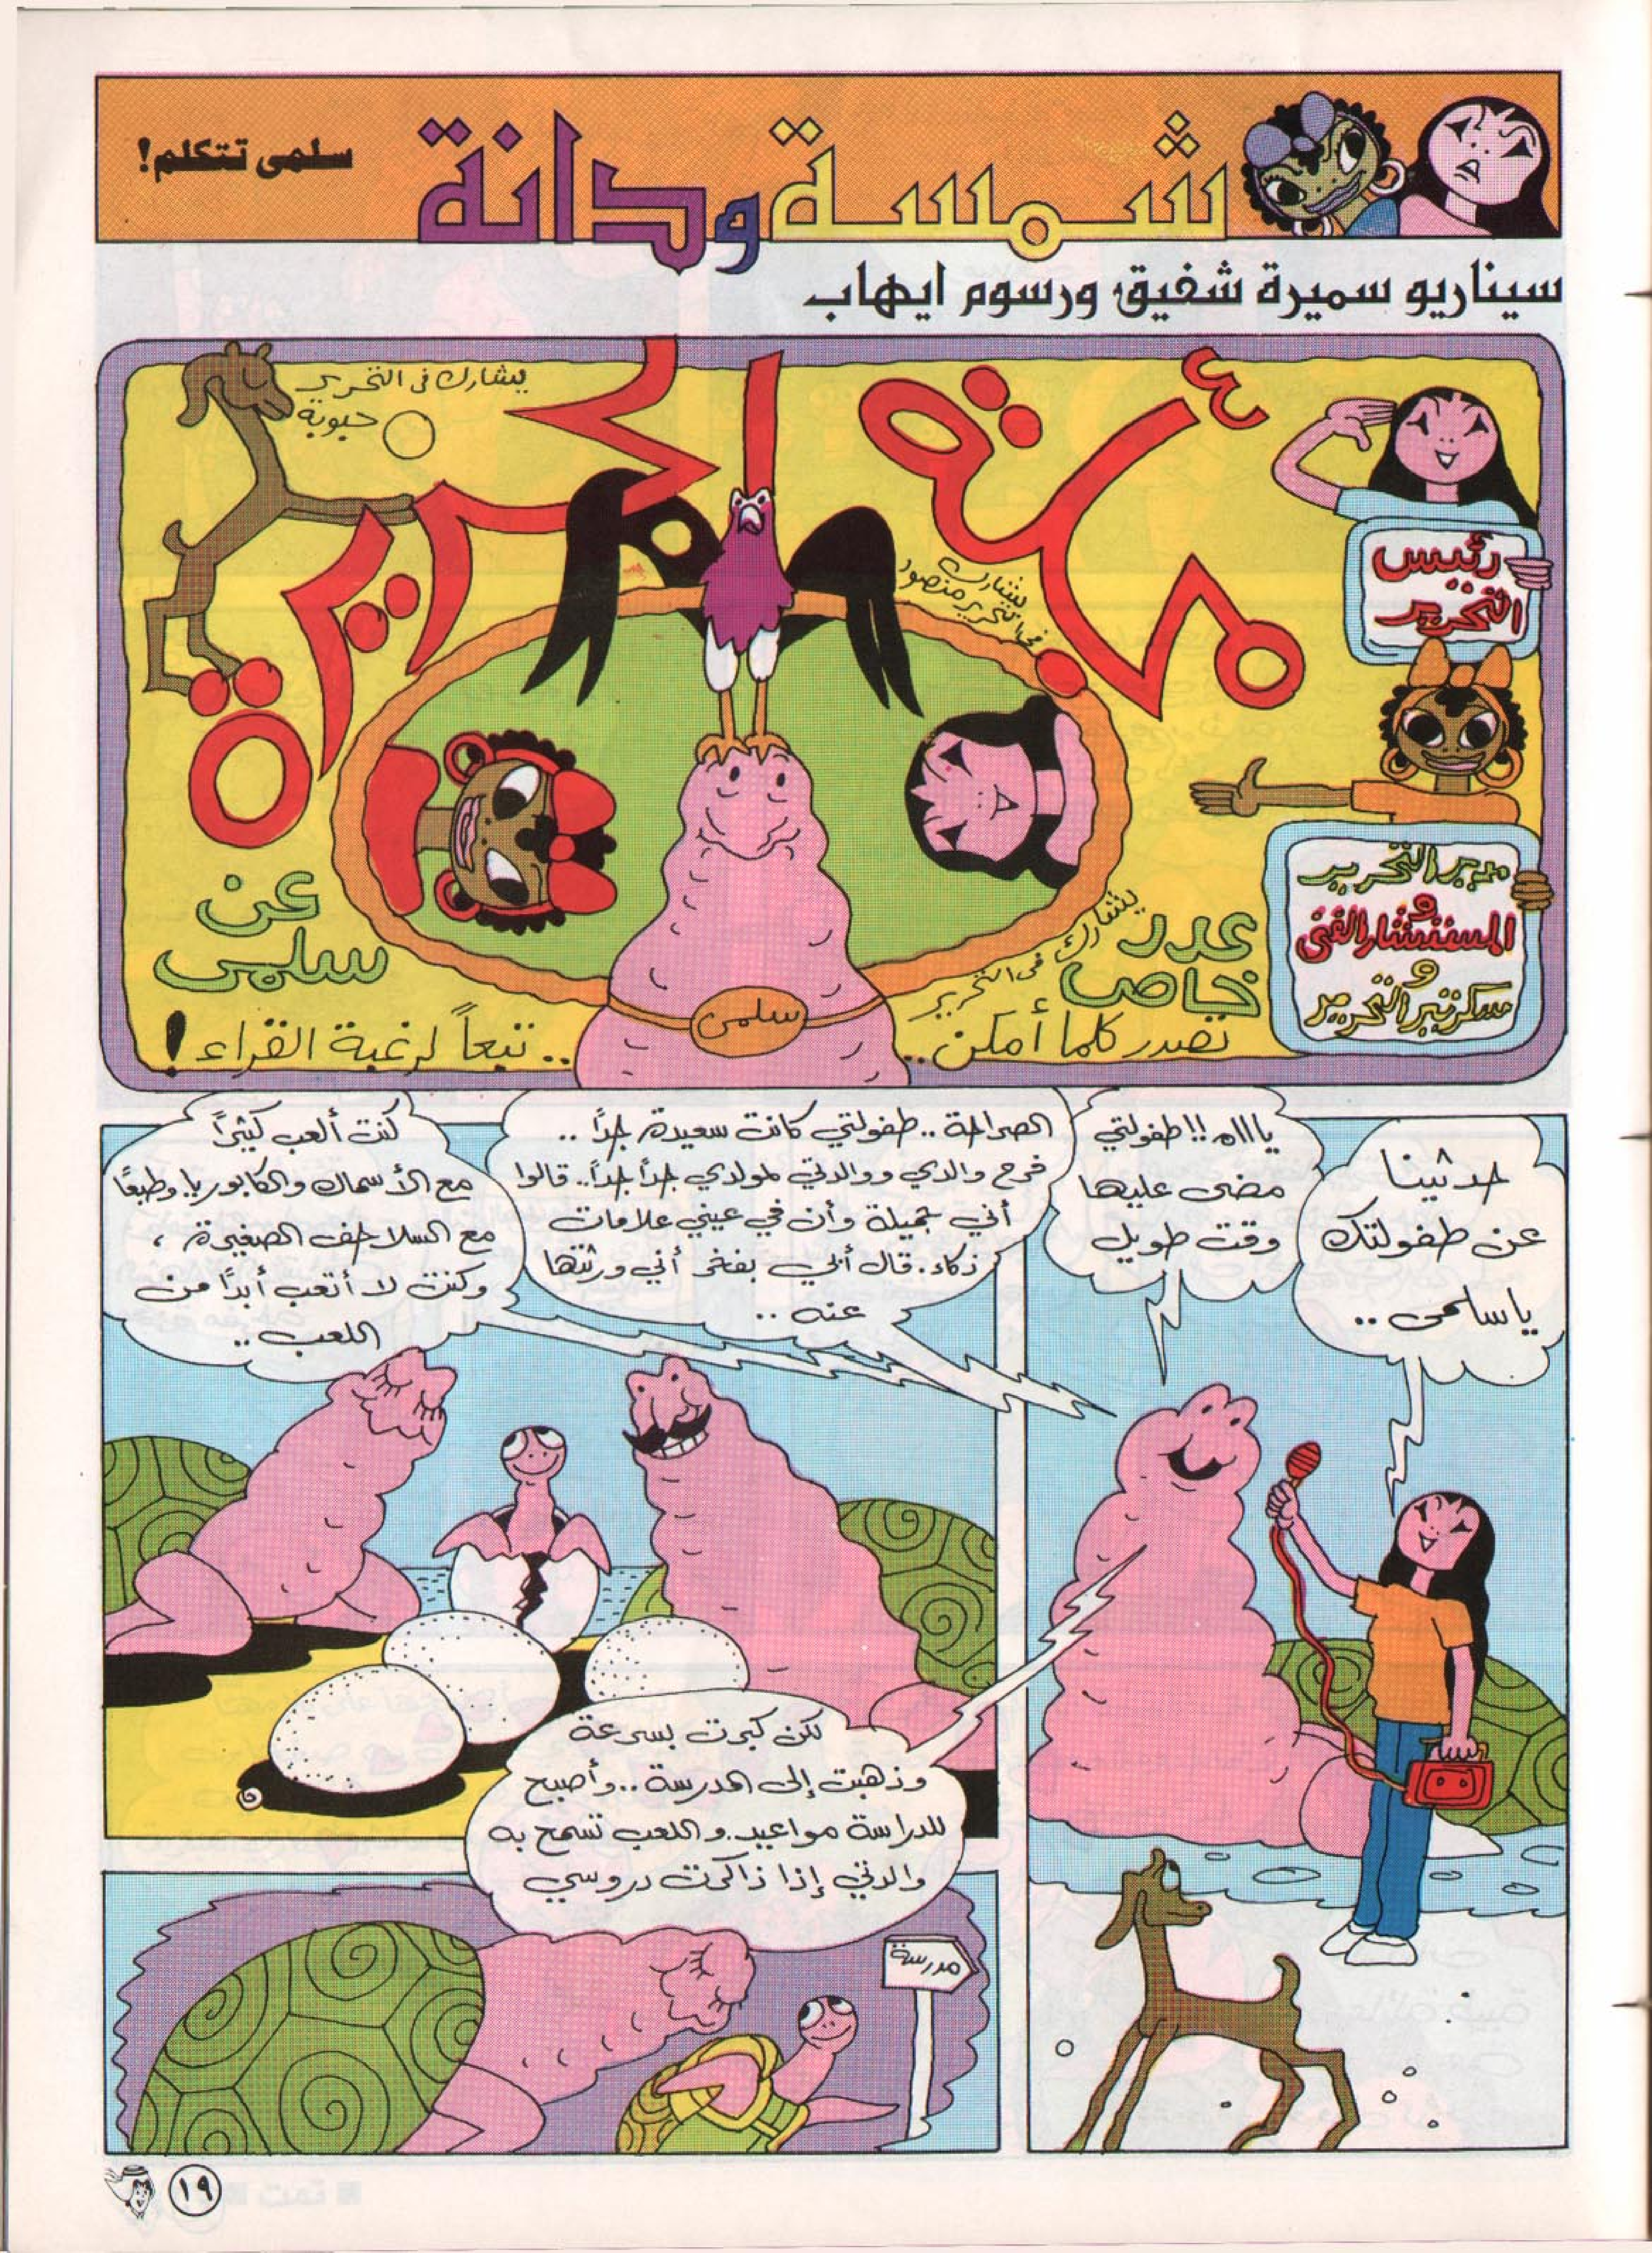 شمسة ودانة
سلمى تتكلم!
سيناريو سميرة شفيق ورسوم ايهاب
مجلة الجزيرة
رئيس
التحرير
مدير التحرير
و
المستشار الفني
و
سكرتير التحرير
يشارك في التحرير
حبوبة
يشارك
في التحرير منصور
يشارك
في التحرير
سلمى
عدد
خاص
عن
سلمى
تصدر كلما أمكن..
.. تبعاً لرغبة القراء!
حدثينا
عن طفولتك
يا سلمى ..
يااااه!! طفولتي
مضى عليها
وقت طويل
الصراحة .. طفولتي كانت سعيدة جدًا ..
فرح والدي ووالدتي لمولدي جدًا جدًا.. قالوا
أني جميلة وأن في عيني علامات
ذكاء. قال أبي بفخر أني ورثتها
عنه ..
كنت ألعب كثيرًا
مع الأسماك والكابوريا. وطبعًا
مع السلاحف الصغيرة ،
وكنت لا أتعب أبدًا من
اللعب ..
لكن كبرت بسرعة
وذهبت إلى المدرسة .. وأصبح
للدراسة مواعيد. واللعب تسمح به
والدتي إذا ذاكرت دروسي
مدرسة
١٩